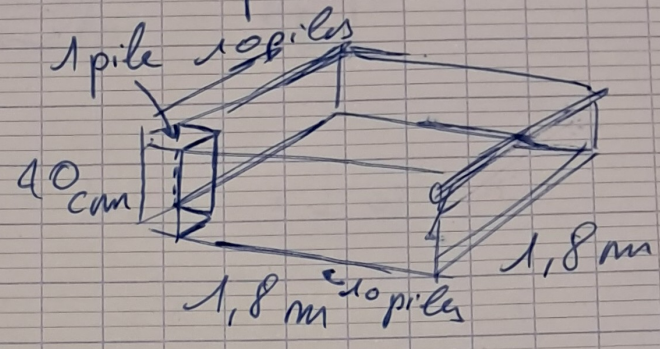 1 pile 10 piles
40
cm
1,8 m
10 piles
1,8 m